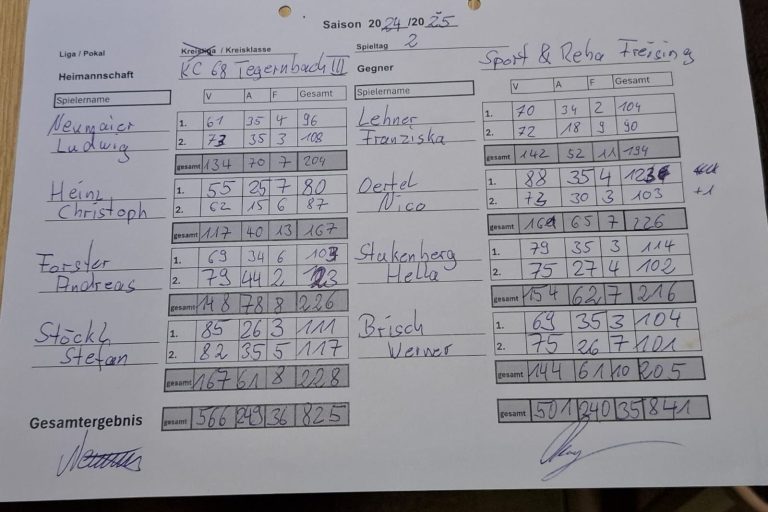 Saison 2024/2025
Liga / Pokal Kreisliga / Kreisklasse Spieltag 2
Heimannschaft KC 68 Tegernbach III Gegner Sport & Reha Freising
Spielername V A F Gesamt Spielername V A F Gesamt
Neumaier 1. 61 35 4 96 Lehner 1. 70 34 2 104
Ludwig 2. 73 35 3 108 Franziska 2. 72 18 9 90
gesamt 134 70 7 204 gesamt 142 52 11 194
Heinz 1. 55 25 7 80 Oertel 1. 88 35 4 123
Christoph 2. 62 15 6 87 Nico 2. 73 30 3 103 +1
gesamt 117 40 13 167 gesamt 161 65 7 226
Forster 1. 69 34 6 103 Stukenberg 1. 79 35 3 114
Andreas 2. 79 44 2 123 Hella 2. 75 27 4 102
gesamt 148 78 8 226 gesamt 154 62 7 216
Stöckl 1. 85 26 3 111 Brisch 1. 69 35 3 104
Stefan 2. 82 35 5 117 Werner 2. 75 26 7 101
gesamt 167 61 8 228 gesamt 144 61 10 205
Gesamtergebnis gesamt 566 249 36 825 gesamt 501 240 35 841